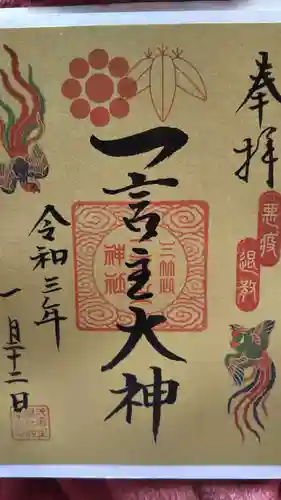 奉拝
悪疫
退散
一言主大神
三竈
神社
令和三年
一月二十二日